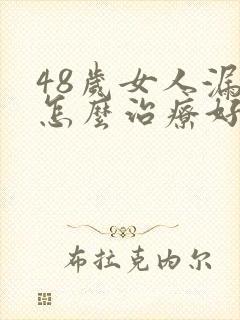 48歲女人漏
怎麼治療好
布拉克內尔